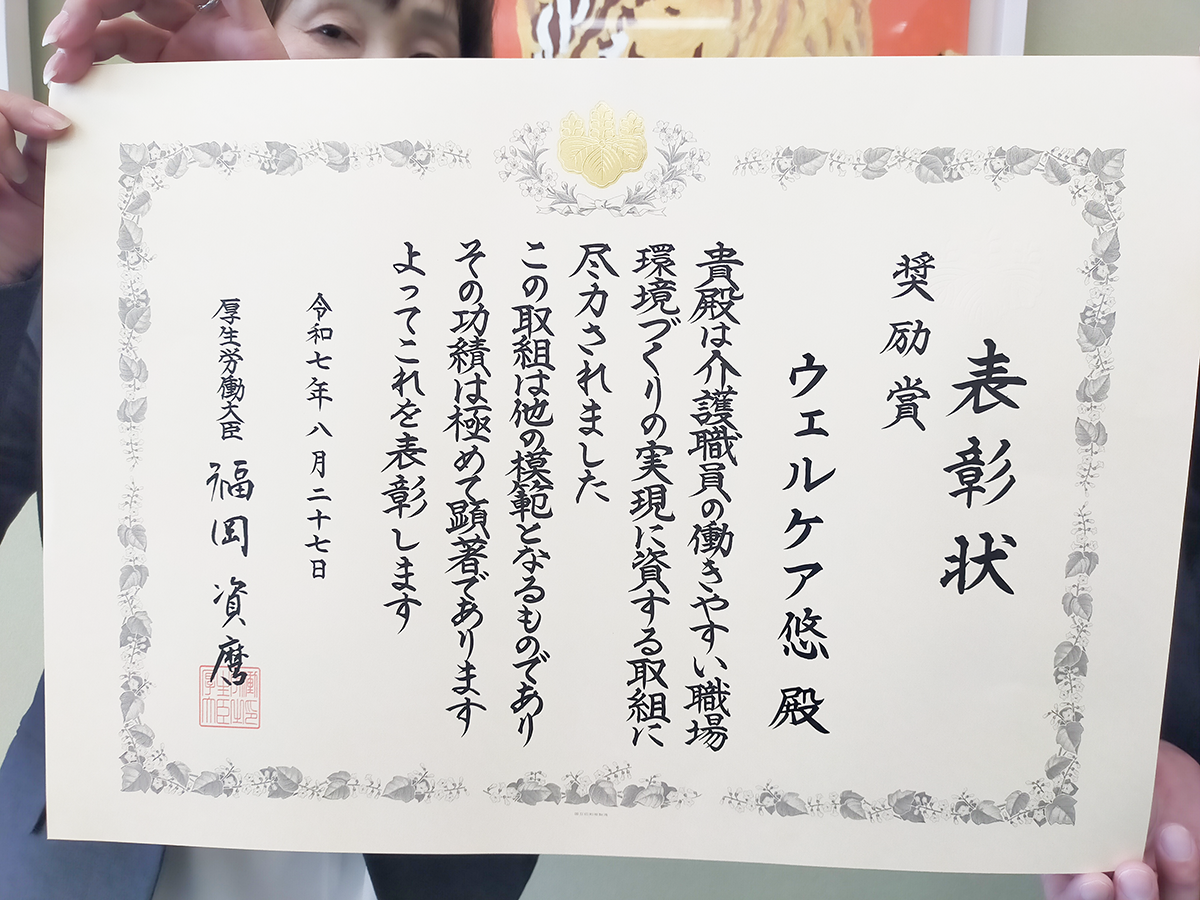 表彰状
奨励賞
ウェルケア悠 殿
貴殿は介護職員の働きやすい職場
環境づくりの実現に資する取組に
尽力されました
この取組は他の模範となるものであり
その功績は極めて顕著であります
よってこれを表彰します
令和七年八月二十七日
厚生労働大臣 福岡資麿